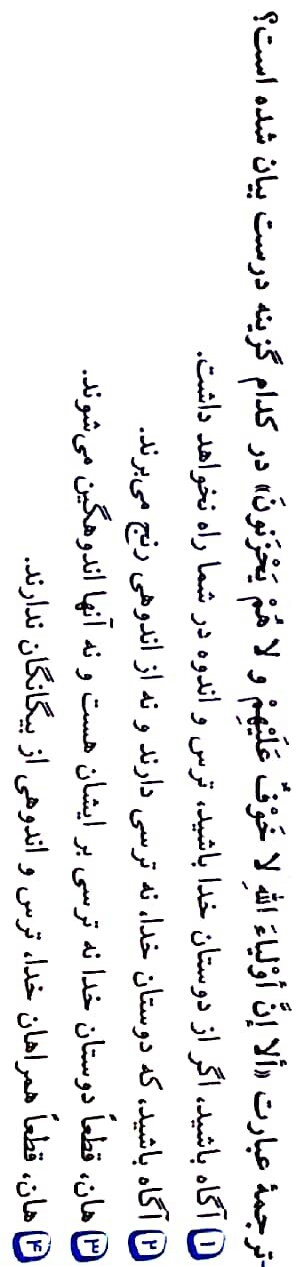 -ترجمهٔ عبارت «ألا إنَّ أوْلیاءَ اللهِ لا خَوْفٌ عَلَیْهِمْ و لا هُمْ یَحْزَنونَ» در کدام گزینه درست بیان شده است؟
۱ آگاه باشید، اگر از دوستان خدا باشید، ترس و اندوه در شما راه نخواهد داشت.
۲ آگاه باشید، که دوستان خدا، نه ترسی دارند و نه از اندوهی رنج می‌برند.
۳ هان، قطعاً دوستان خدا نه ترسی بر ایشان هست و نه آنها اندوهگین می‌شوند.
۴ هان، قطعاً همراهان خدا، ترس و اندوهی از بیگانگان ندارند.